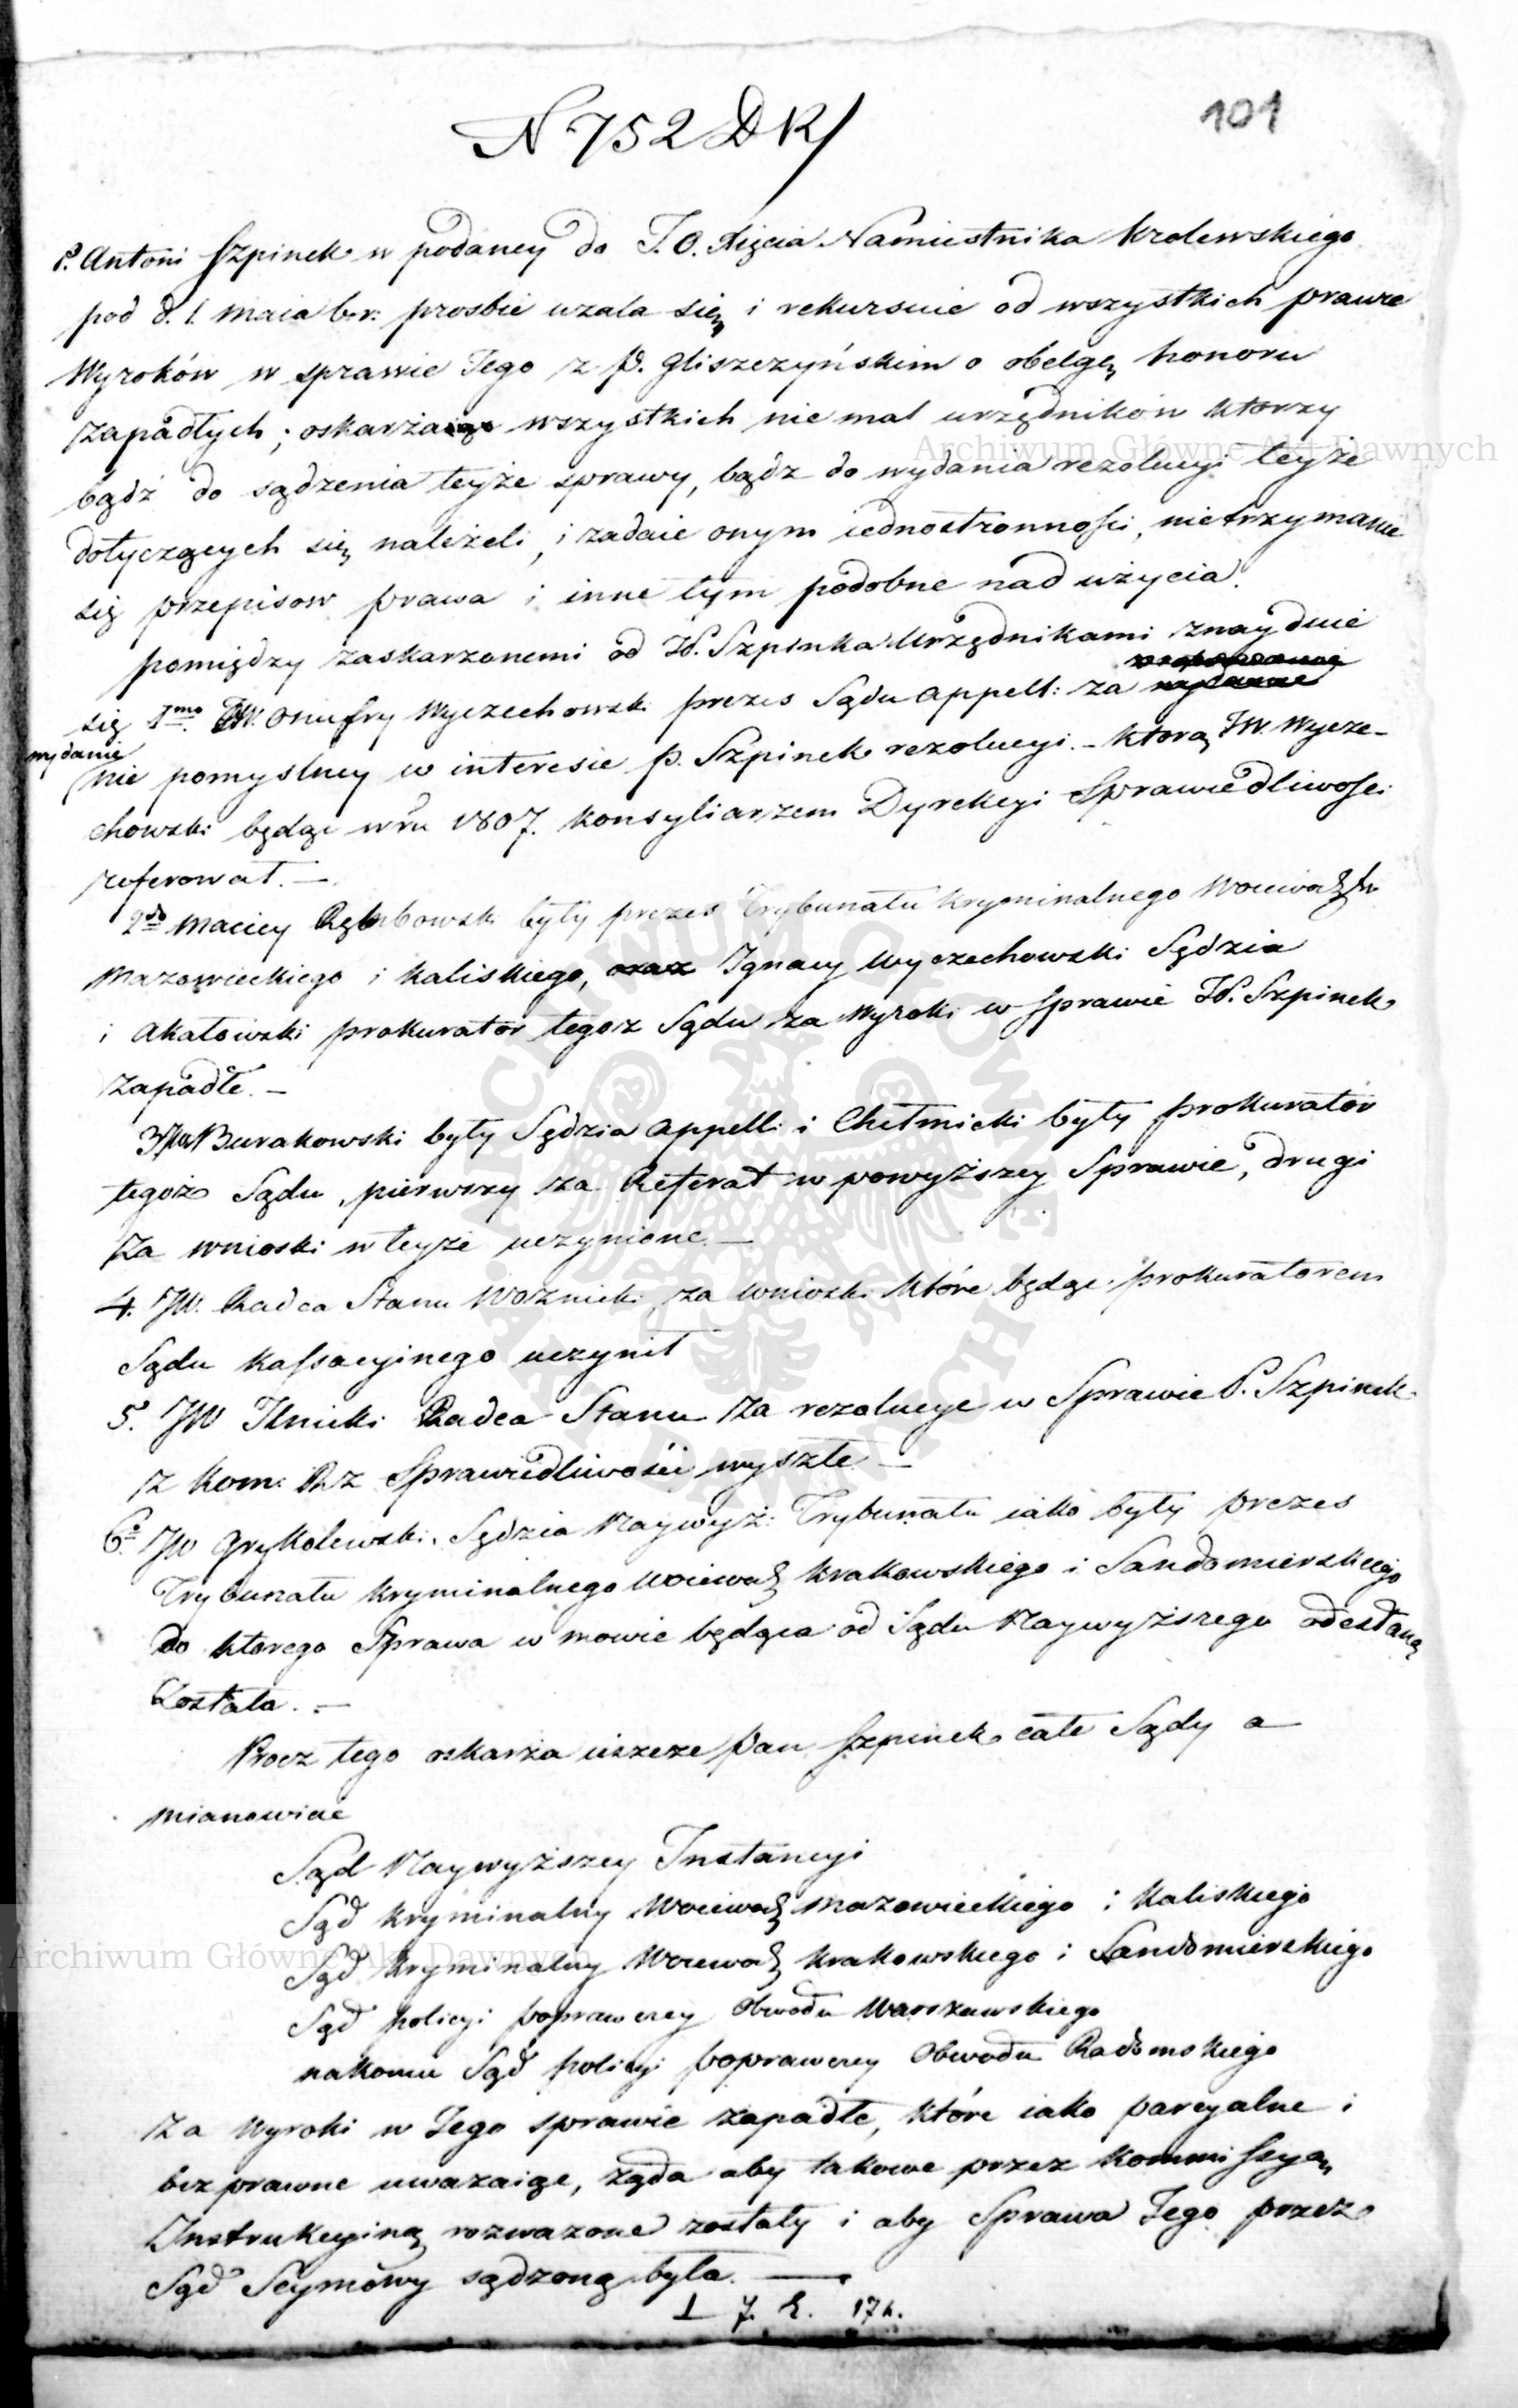 N 752 DK/
101
P. Antoni Szpinek w podaney do J.O. Xięcia Namiestnika Krolewskiego
pod d. 1. Maia b.r. prosbie uzala się i rekursuie od wszystkich prawie
Wyroków w sprawie Jego z P. Gliszczyńskim o obelgę honoru
zapadłych; oskarża wszystkich nie mal urzędników ktorzy
bądź do sądzenia teyże sprawy, bądz do wydania rezolucyi teyże
dotyczących się należeli, i zadaie onym iednostronności, nietrzymanie
się przepisow prawa i inne tym podobne nad użycia.
pomiędzy zaskarzonemi od P. Szpinka Urzędnikami znayduie
się 1mo. JW. Onufry Wyczechowski prezes Sądu Appell: za
wydanie
nie pomyslney w interesie P. Szpinek rezolucyi. – ktorą JW. Wycze-
chowski będąc w ru 1807. Konsyliarzem Dyrekcyi Sprawiedliwości
referował. —
2do Maciey Rębowski były prezes Trybunału Kryminalnego Woiewodztw
Mazowieckiego i Kaliskiego, oraz Ignacy Wyczechowski Sędzia
i Akałowski prokurator tegoz Sądu za Wyroki w sprawie P. Szpinek
zapadłe. —
Burakowski były Sędzia Appell: i Chełmicki były prokurator
tegoż Sądu, pierwszy za Referat w powyższey Sprawie, drugi
za wnioski w teyże uczynione. —
4. JW. Radca Stanu Woznicki, za wnioski które będąc prokuratorem
Sądu Kassacyinego uczynił
5. JW Ilnicki Radca Stanu za rezolucye w Sprawie P. Szpinek
z Kom: Rz Sprawiedliwości wyszłe —
6. JW Sędzia Naywyż: Trybunału iako były prezes
Trybunału Kryminalnego Woiewodz Krakowskiego i Sandomierskiego
do ktorego Sprawa w mowie będąca od Sądu Naywyższego odesłaną
Została. —
Procz tego oskarża ieszcze Pan Szpinek całe Sądy a
mianowicie
Sąd Naywyższey Instancyi
Sąd Kryminalny Woiewodz Mazowieckiego i Kaliskiego
Sąd Kryminalny Woiewodz Krakowskiego i Sandomierskiego
Sąd policyi poprawczey Obwodu Warszawskiego
nakoniec Sąd policyi poprawczey Obwodu Radomskiego
za Wyroki w Jego sprawie zapadłe, które iako parcyalne i
bezprawne uwazaiąc, ząda aby takowe przez Kommissyą
Instrukcyiną rozwazone zostały i aby Sprawa Jego przez
Sąd Seymowy sądzoną była. —
Archiwum Główne Akt Dawnych
Archiwum Główne Akt Dawnych
ARCHIWUM GŁÓWNE AKT DAWNYCH